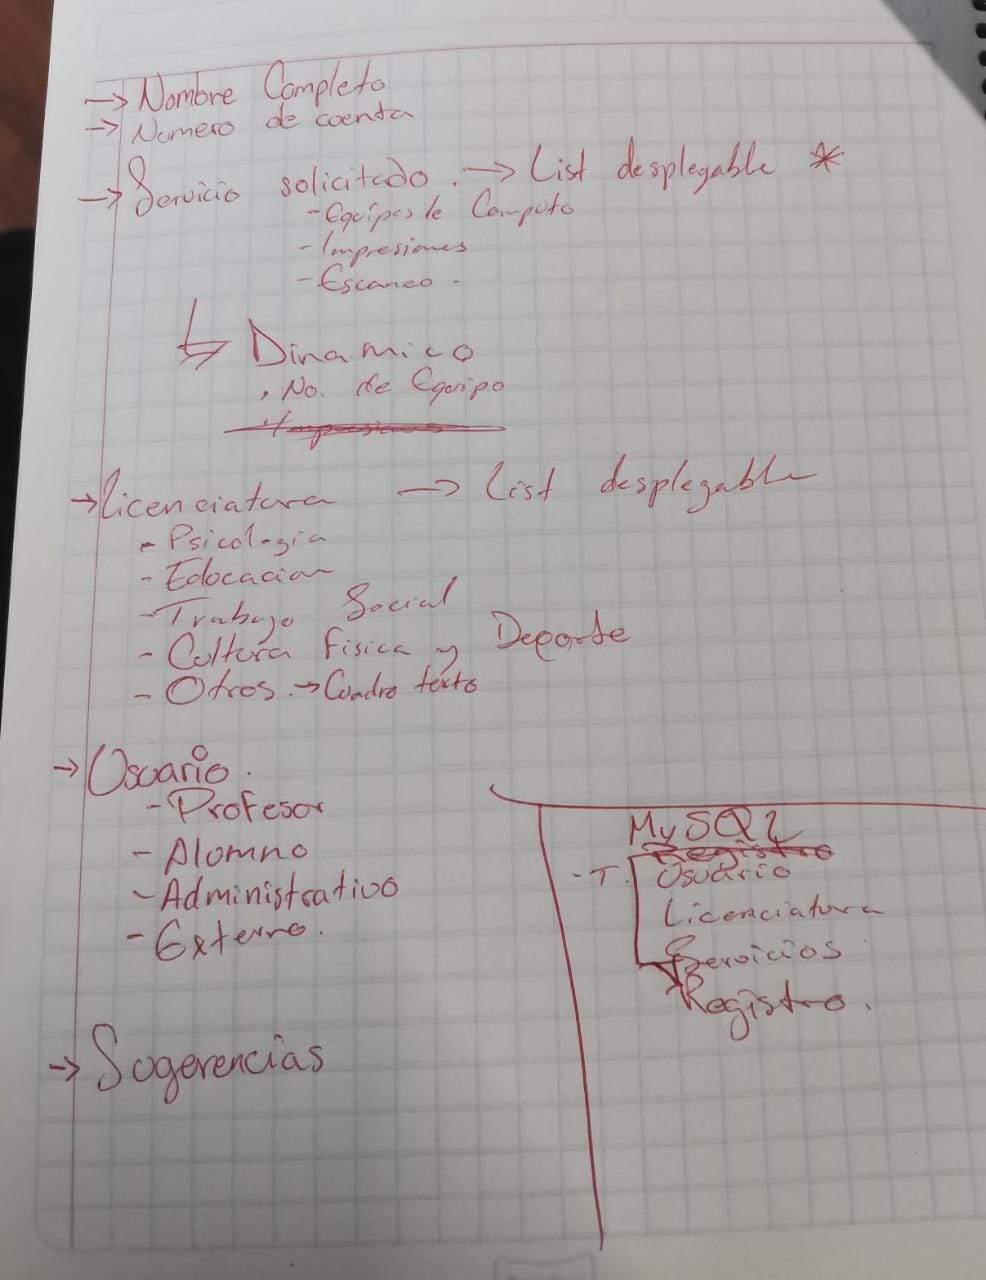 → Nombre Completo
→ Numero de cuenta
→ Servicio solicitado. → List desplegable *
- Equipos de Computo
- Impresiones
- Escaneo.
↳ Dinamico
. No. de Equipo
Impresiones
→ Licenciatura → List desplegable
- Psicologia
- Educacion
- Trabajo Social
- Cultura Fisica y Deporte
- Otros → Cuadro texto
→ Usuario.
- Profesor
- Alumno
- Administrativo
- Externo.
→ Sugerencias
MySQL
Registro
- T. Usuario
Licenciatura
Servicios
Registro.